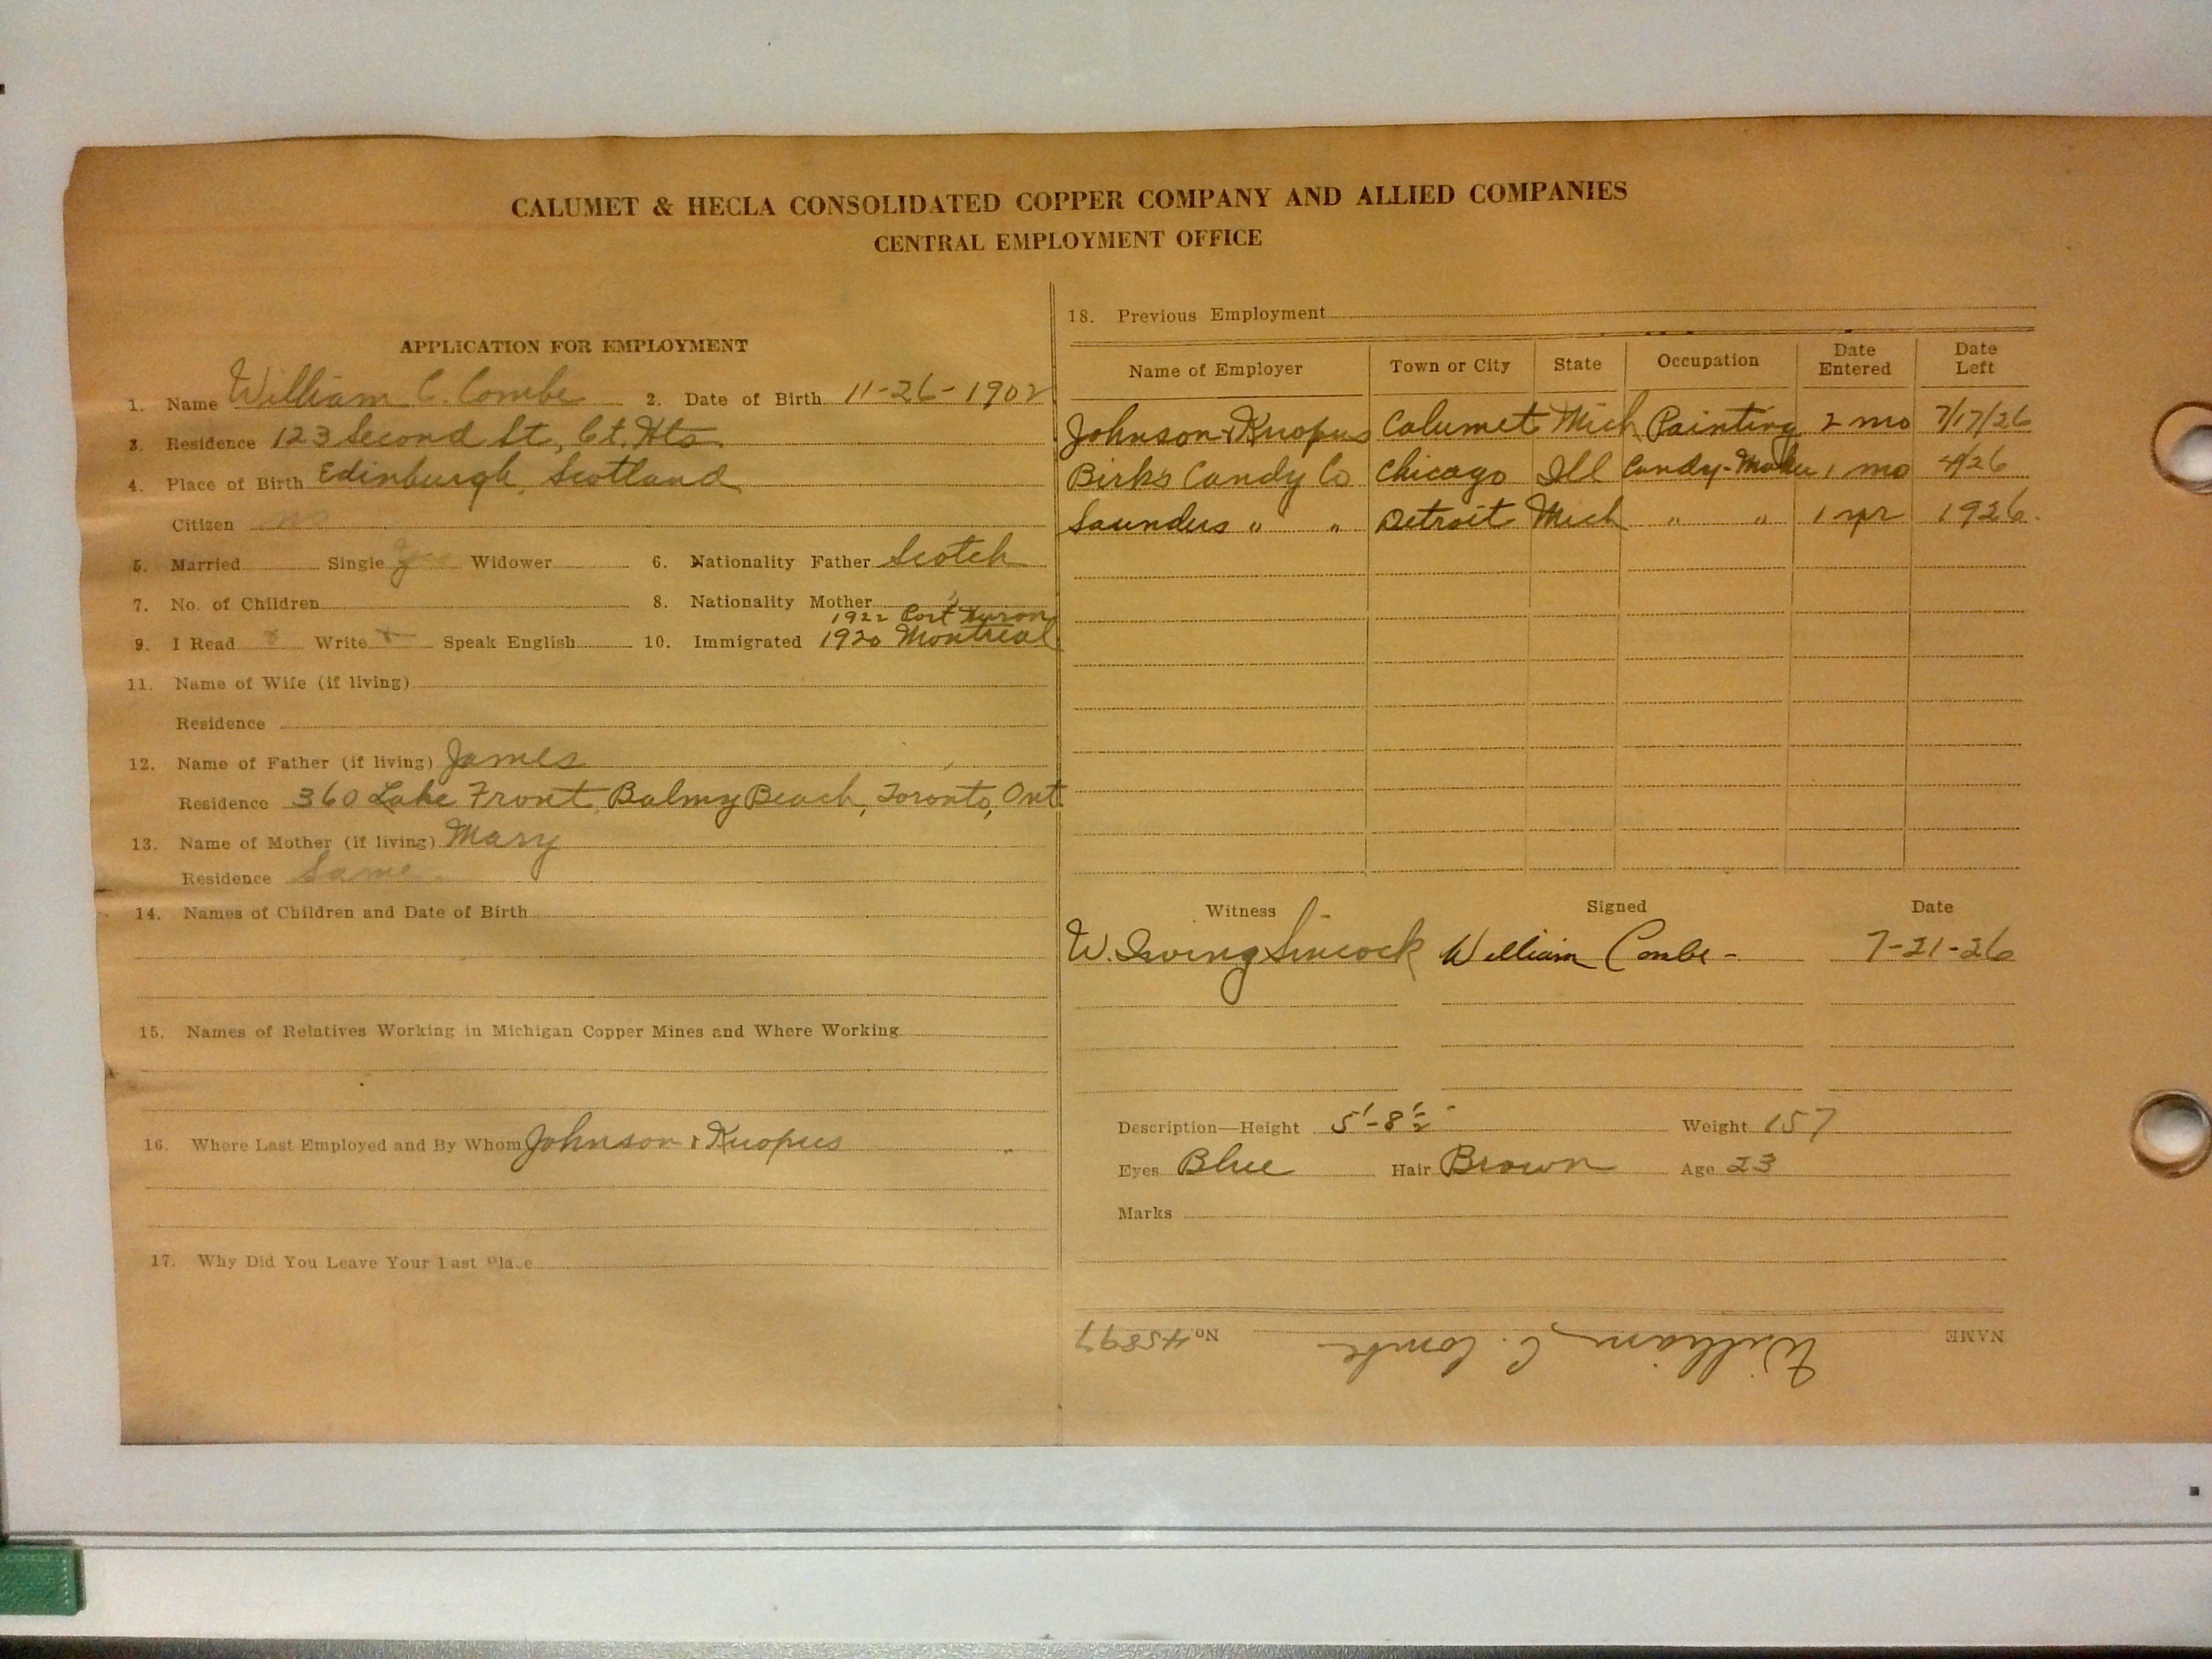 CALUMET & HECLA CONSOLIDATED COPPER COMPANY AND ALLIED COMPANIES
CENTRAL EMPLOYMENT OFFICE
APPLICATION FOR EMPLOYMENT
1. Name William C. Combe 2. Date of Birth 11-26-1902
3. Residence 123 Second St., Ct. Hts.
4. Place of Birth Edinburgh, Scotland
Citizen no
5. Married Single yes Widower 6. Nationality Father Scotch
7. No. of Children 8. Nationality Mother "
1922 Port Huron
9. I Read x Write x Speak English 10. Immigrated 1920 Montreal
11. Name of Wife (if living)
Residence
12. Name of Father (if living) James
Residence 360 Lake Front, Balmy Beach, Toronto, Ont.
13. Name of Mother (if living) Mary
Residence Same.
14. Names of Children and Date of Birth
15. Names of Relatives Working in Michigan Copper Mines and Where Working
16. Where Last Employed and By Whom Johnson & Knopus
17. Why Did You Leave Your Last Place
18. Previous Employment
Name of Employer Town or City State Occupation Date Entered Date Left
Johnson & Knopus Calumet Mich Painting 2 mo 7/17/26
Birks Candy Co Chicago Ill Candy-Maker 1 mo 4/26
Saunders " " Detroit Mich " " 1 yr 1926.
Witness Signed Date
W. Irving Sincock William Combe - 7-21-26
Description—Height 5'-8½" Weight 157
Eyes Blue Hair Brown Age 23
Marks
NAME William C. Combe No 45897